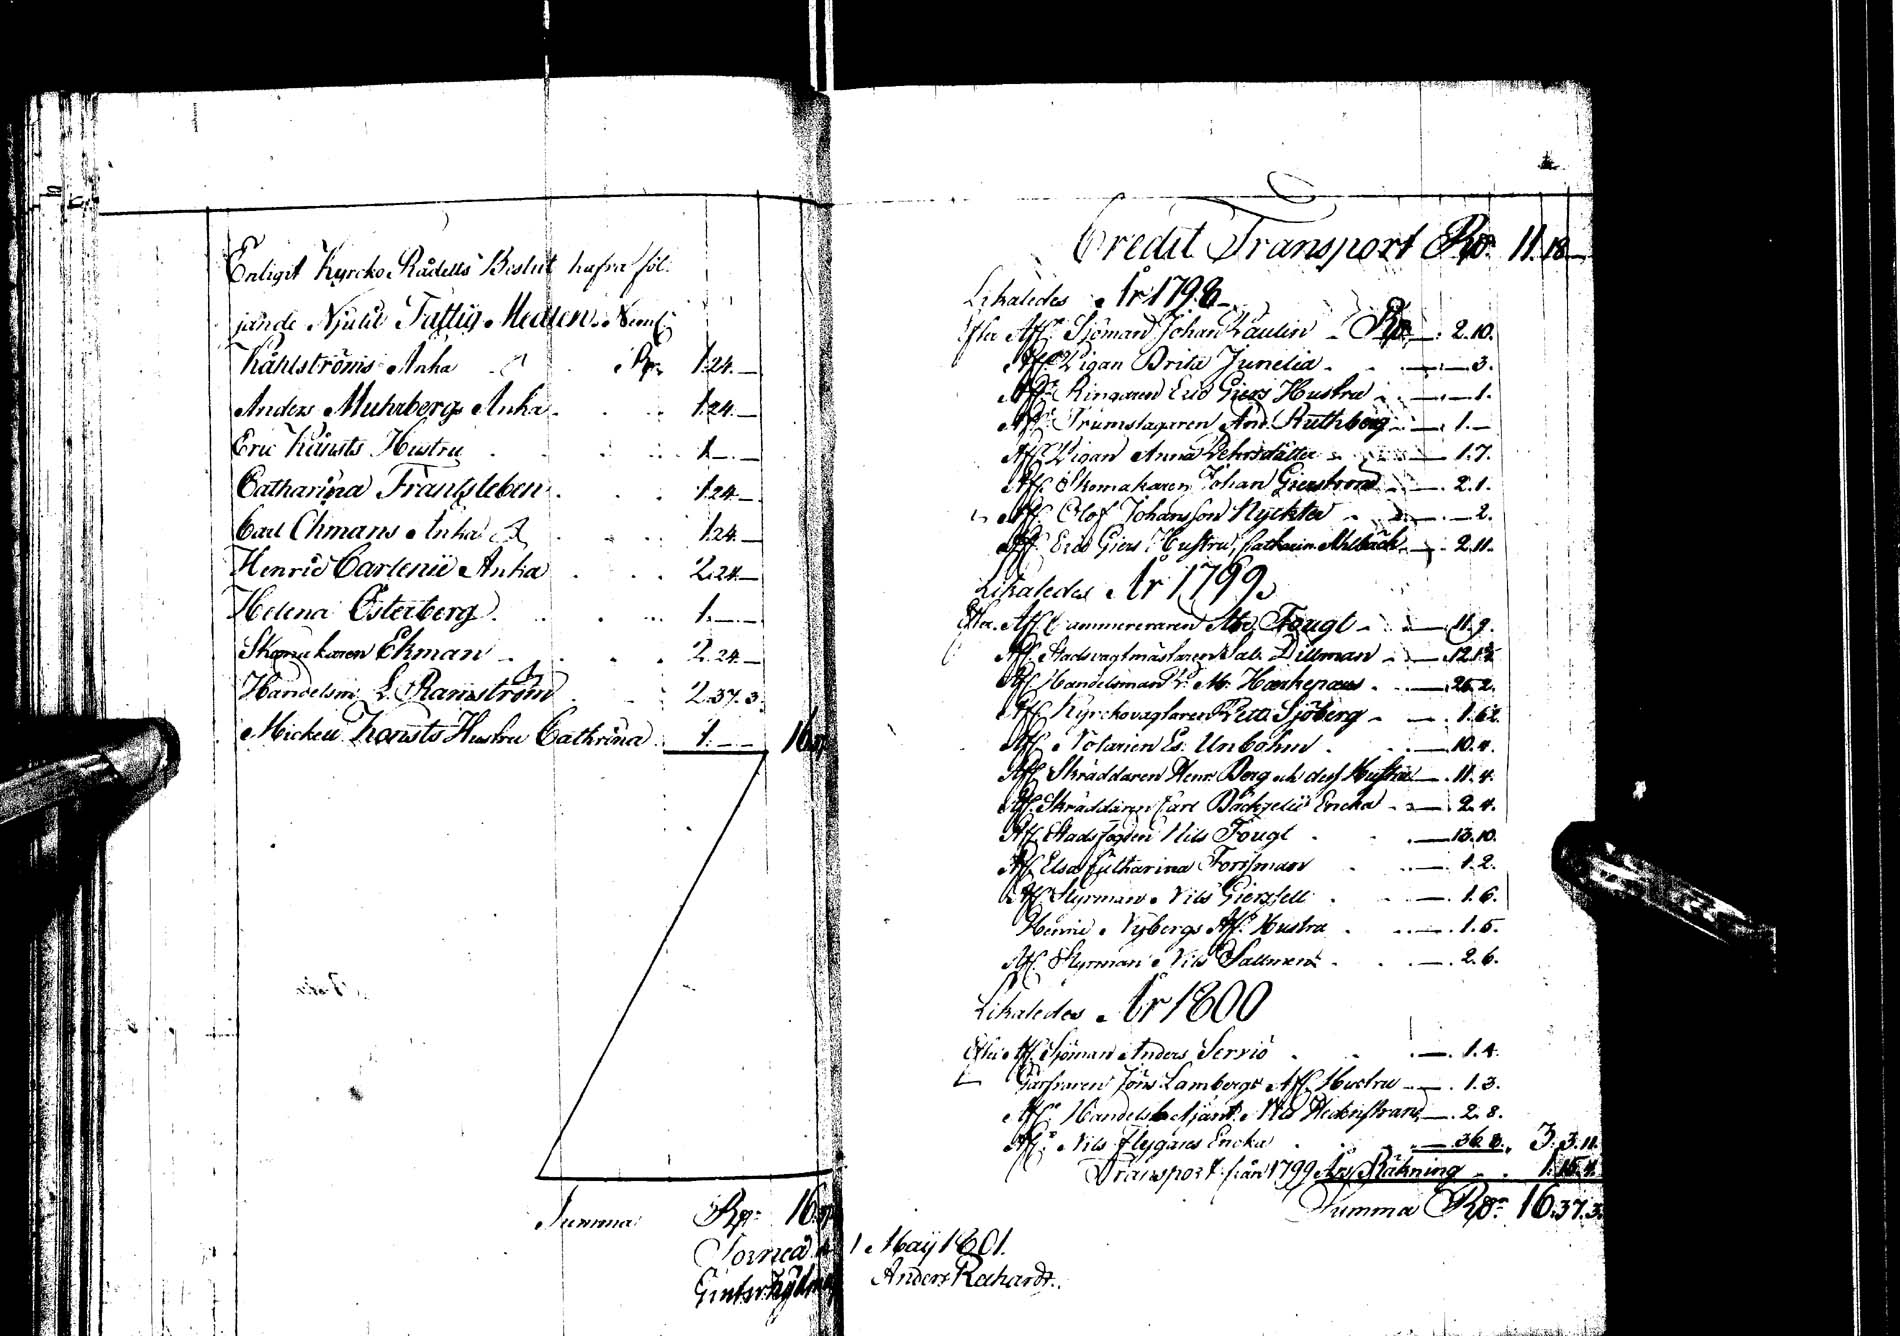 Enligit Kyrcko Rådetts Beslut hafva föl:
jande Njutit Fattig Medlen. Neml:
Kåhlströms Anka Rd. 1.24.—
Anders Muhrbergs Anka 1.24.—
Eric Kånsts Hustru 1.—.—
Catharina Frantsleben 1.24.—
Carl Ehmans Anka 1.24.—
Henric Carlenii Anka 2.24.—
Helena Österberg 1.—.—
Skomakaren Ekman 2.24.—
Handelsm. L. Ramström 2.37.3.
Mickel Konsts Hustru Cathrina 1.—.— 16.37
Summa Rd. 16.37
Credit Transport Rd. 11.18.—
Likaledes År 1798
Efter Afl. Sjöman Johan Paulin Rd. —. 2.10.
Afl. Pigan Brita Junelia —.—3.
Afl. Ringaren Eric Giers Hustru —.—1.
Afl. Trumslagaren And. Ruthberg —. 1.—
Afl. Pigan Anna Pehrsdätter — 1.7.
Afl. Skomakaren Johan Gierstrom —. 2.1.
Afl. Olof Johansson Nyckter —.—2.
Afl. Eric Giers Hustru, Catharin Ahlbäck —. 2.11.
Likaledes År 1799
Efter Afl. Cammereraren Ab. Fougt —. 11.9.
Afl. Stadsvagtmästaren Dillman —. 12.
Afl. Handelsman Harkepaus —. 25.2.
Afl. Kyrckovagtaren Pett. Sjöberg —. 1.
Afl. Notarien Es. Unbohm —. 10.4.
Afl. Skräddaren Henr. Berg och dess Hustru —. 11.4.
Afl. Skräddaren Carl Bäckzelii Encka —. 2.4.
Afl. Stadsfogden Nils Fougt —. 13.10.
Afl. Elsa Catharina Forssman —. 1.2.
Afl. Styrman Nils Gierssell —. 1.6.
Henric Nybergs Afl. Hustru —. 1.5.
Afl. Styrman Nils Sallmen —. 2.6.
Likaledes År 1800
Efter Afl. Sjöman Anders Serviö —. 1.4.
Garfvaren Jöns Lambergs Afl. Hustru —. 1.3.
Afl. Handels Betjänt Nils Hedenstrand —. 2.8.
Afl. Nils Flygares Encka —36.8. 3.3.11.
Transport från 1799 Års Räkning 1.15.4.
Summa Rd. 16.37.3.
Torneå d. 1 May 1801.
Anders Rechardt.